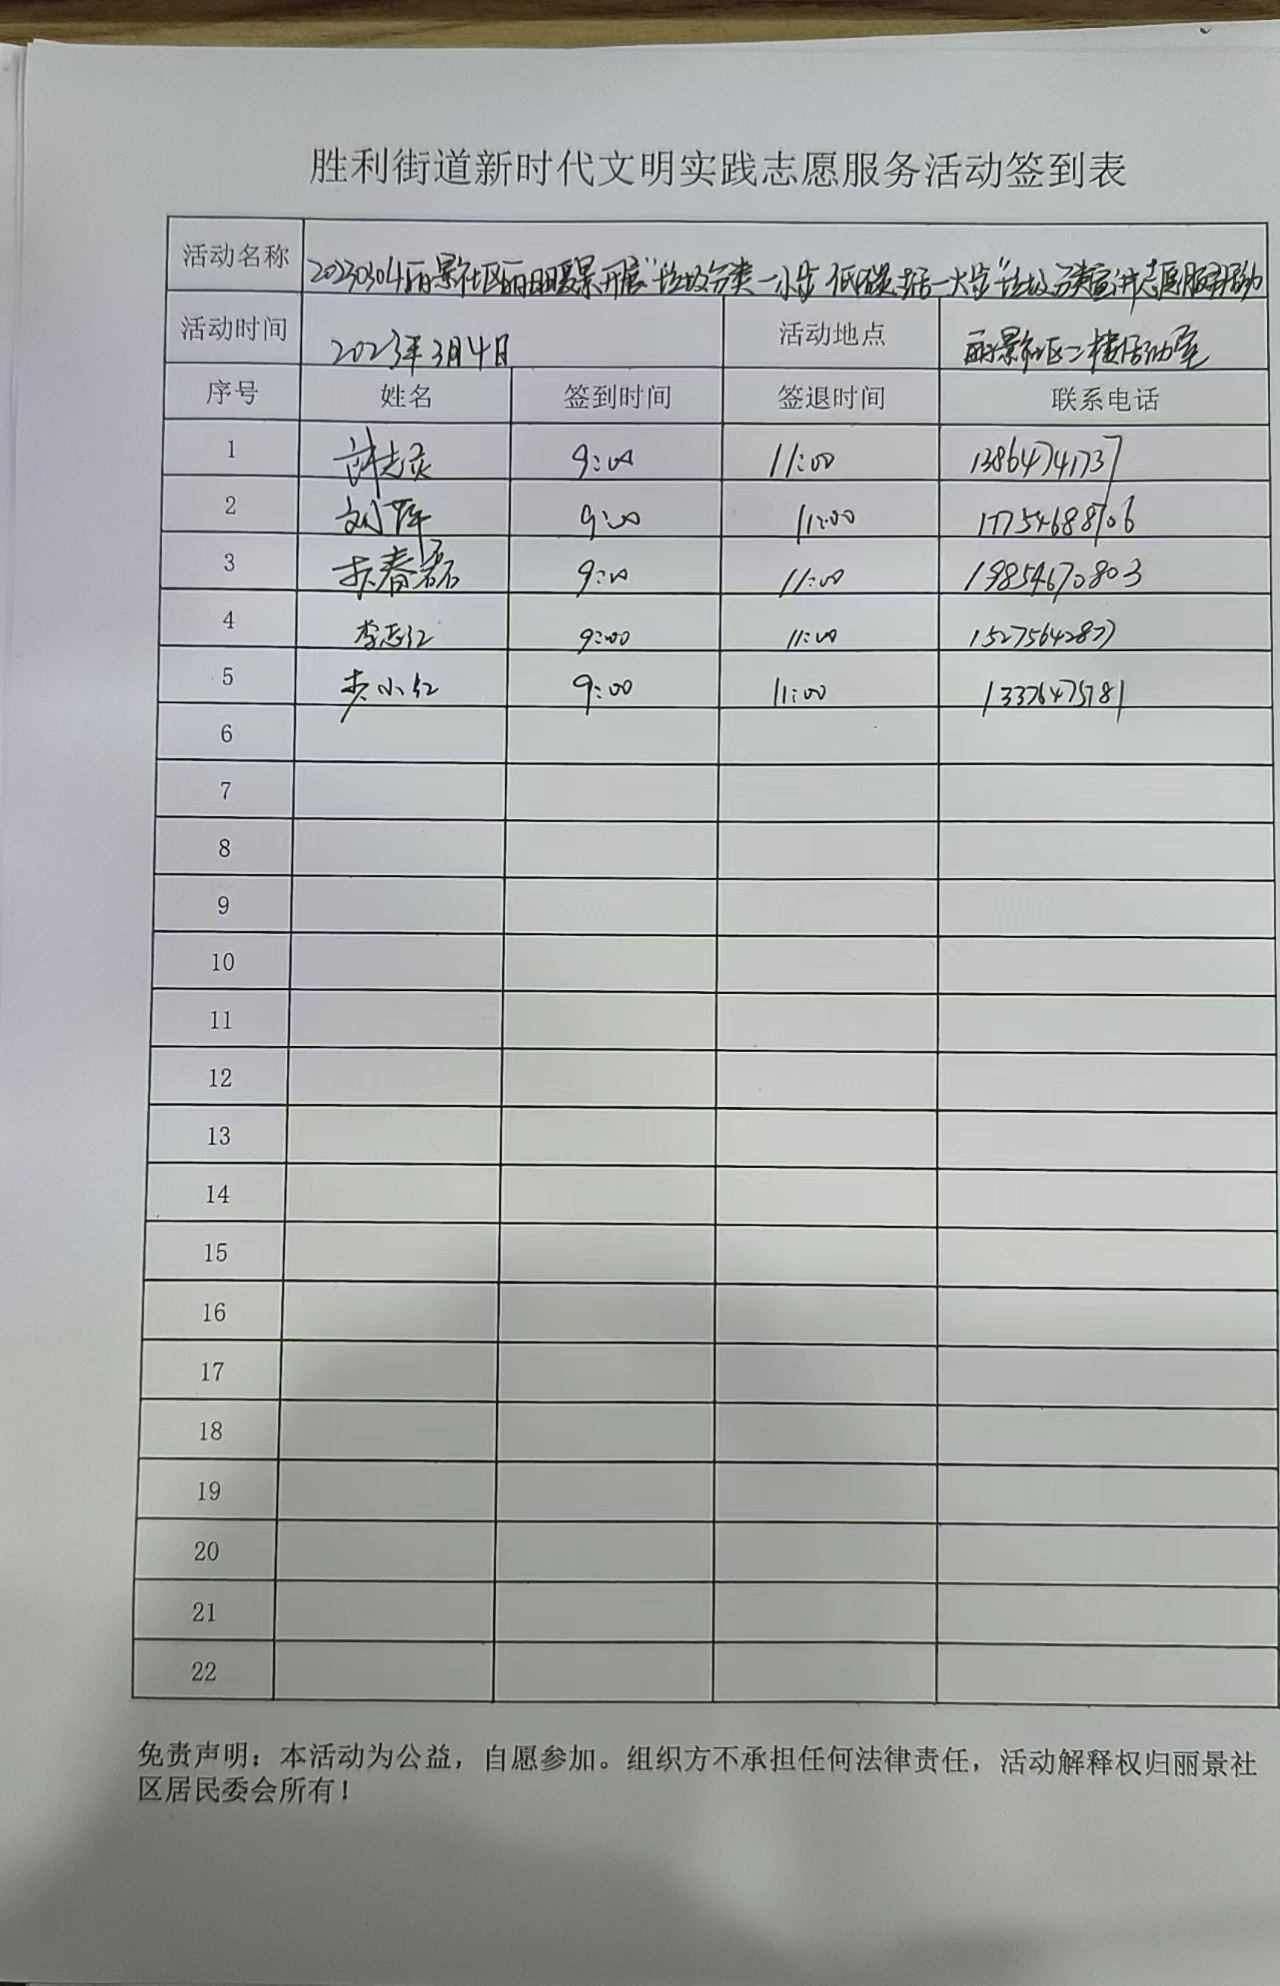 胜利街道新时代文明实践志愿服务活动签到表
活动名称 20230304丽景社区丽阳暖景开展“垃圾分类一小步 低碳生活一大步”垃圾分类宣讲志愿服务活动
活动时间 2023年3月4日 活动地点 丽景社区二楼活动室
序号 姓名 签到时间 签退时间 联系电话
1 9:00 11:00 13864741737
2 刘萍 9:00 11:00 17754688706
3 春磊 9:00 11:00 19854670803
4 李志红 9:00 11:00 15275642877
5 小红 9:00 11:00 13376475781
6
7
8
9
10
11
12
13
14
15
16
17
18
19
20
21
22
免责声明：本活动为公益，自愿参加。组织方不承担任何法律责任，活动解释权归丽景社
区居民委会所有！